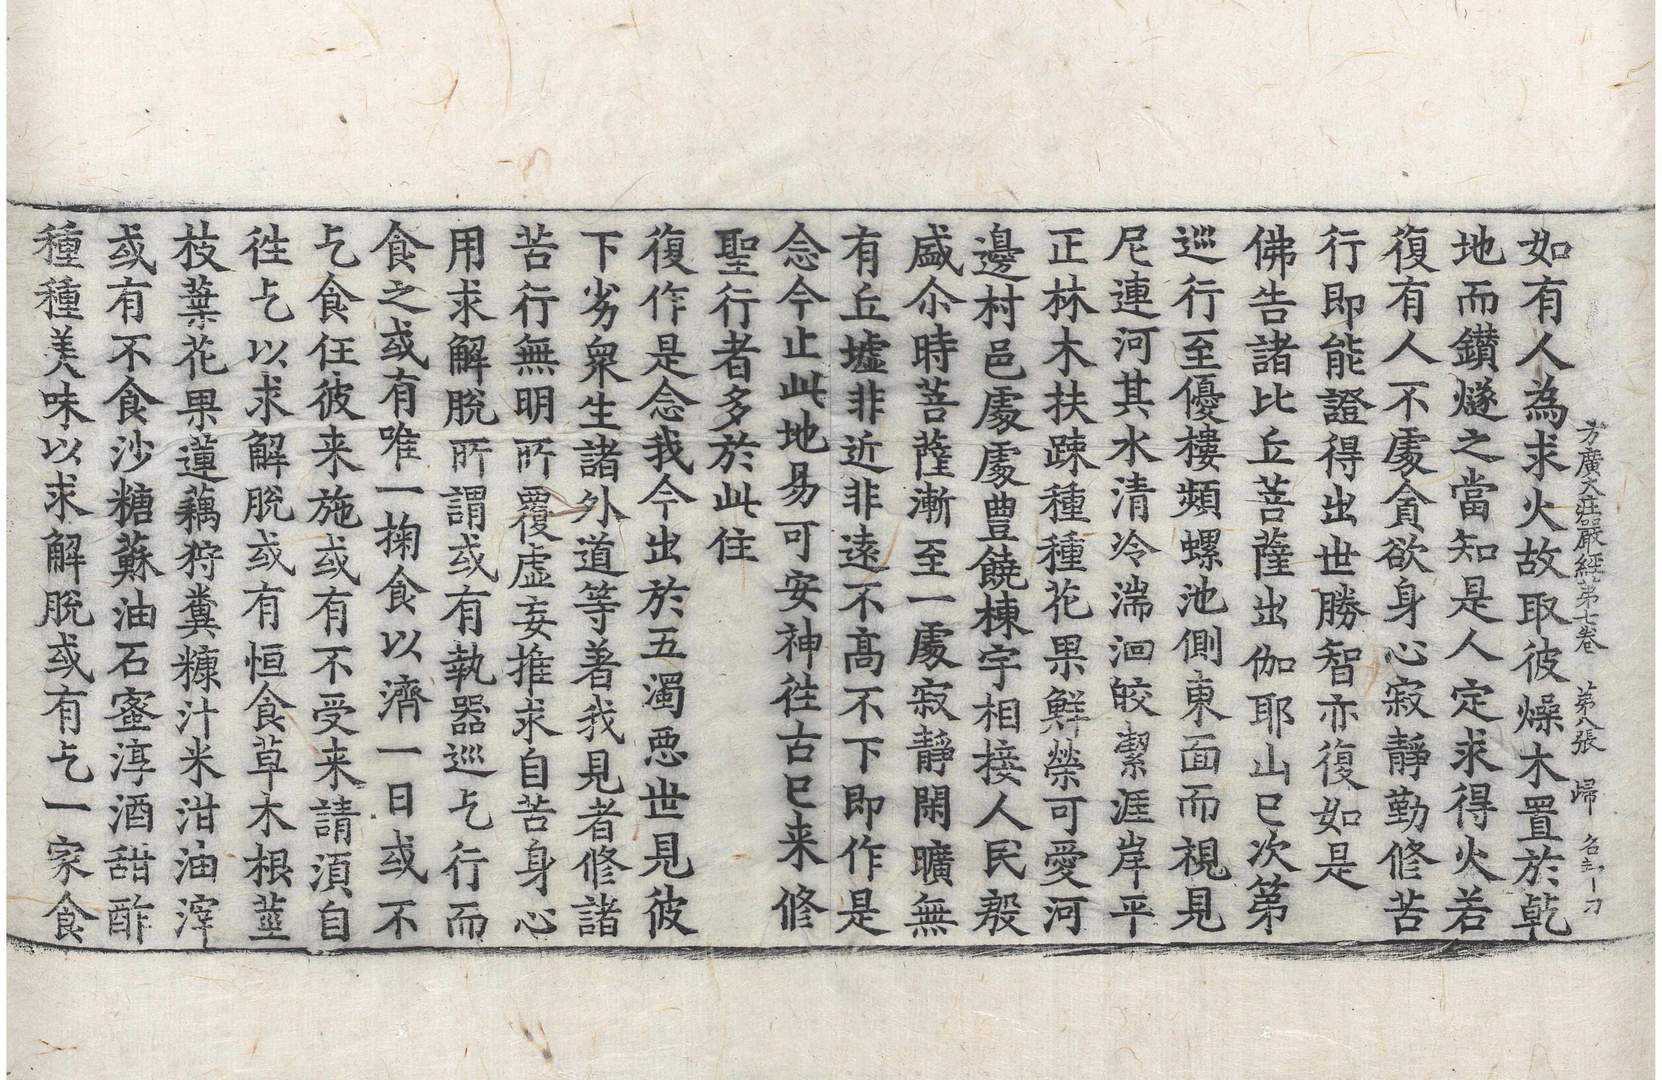 方廣大莊嚴經第七卷　第八張　歸
如有人為求火故取彼燥木置於乾
地而鑽燧之當知是人定求得火若
復有人不處貪欲身心寂靜勤修苦
行即能證得出世勝智亦復如是
佛告諸比丘菩薩出伽耶山已次第
巡行至優樓頻螺池側東面而視見
尼連河其水清冷湍洄皎潔涯岸平
正林木扶踈種種花果鮮榮可愛河
邊村邑處處豊饒棟宇相接人民殷
盛尒時菩薩漸至一處寂靜閑曠無
有丘墟非近非遠不高不下即作是
念今止此地易可安神往古已来修
聖行者多於此住
復作是念我今出於五濁惡世見彼
下劣衆生諸外道等著我見者修諸
苦行無明所覆虛妄推求自苦身心
用求解脫所謂或有執器巡乞行而
食之或有唯一掬食以濟一日或不
乞食任彼来施或有不受来請須自
往乞以求解脫或有恒食草木根莖
枝葉花果蓮藕狩糞糠汁米泔油滓
或有不食沙糖蘇油石蜜淳酒甜酢
種種美味以求解脫或有乞一家食